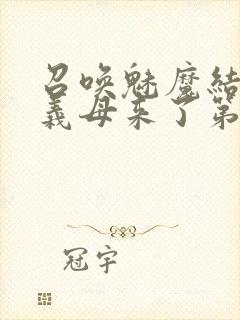 召唤魅魔结
义母来了第
冠宇